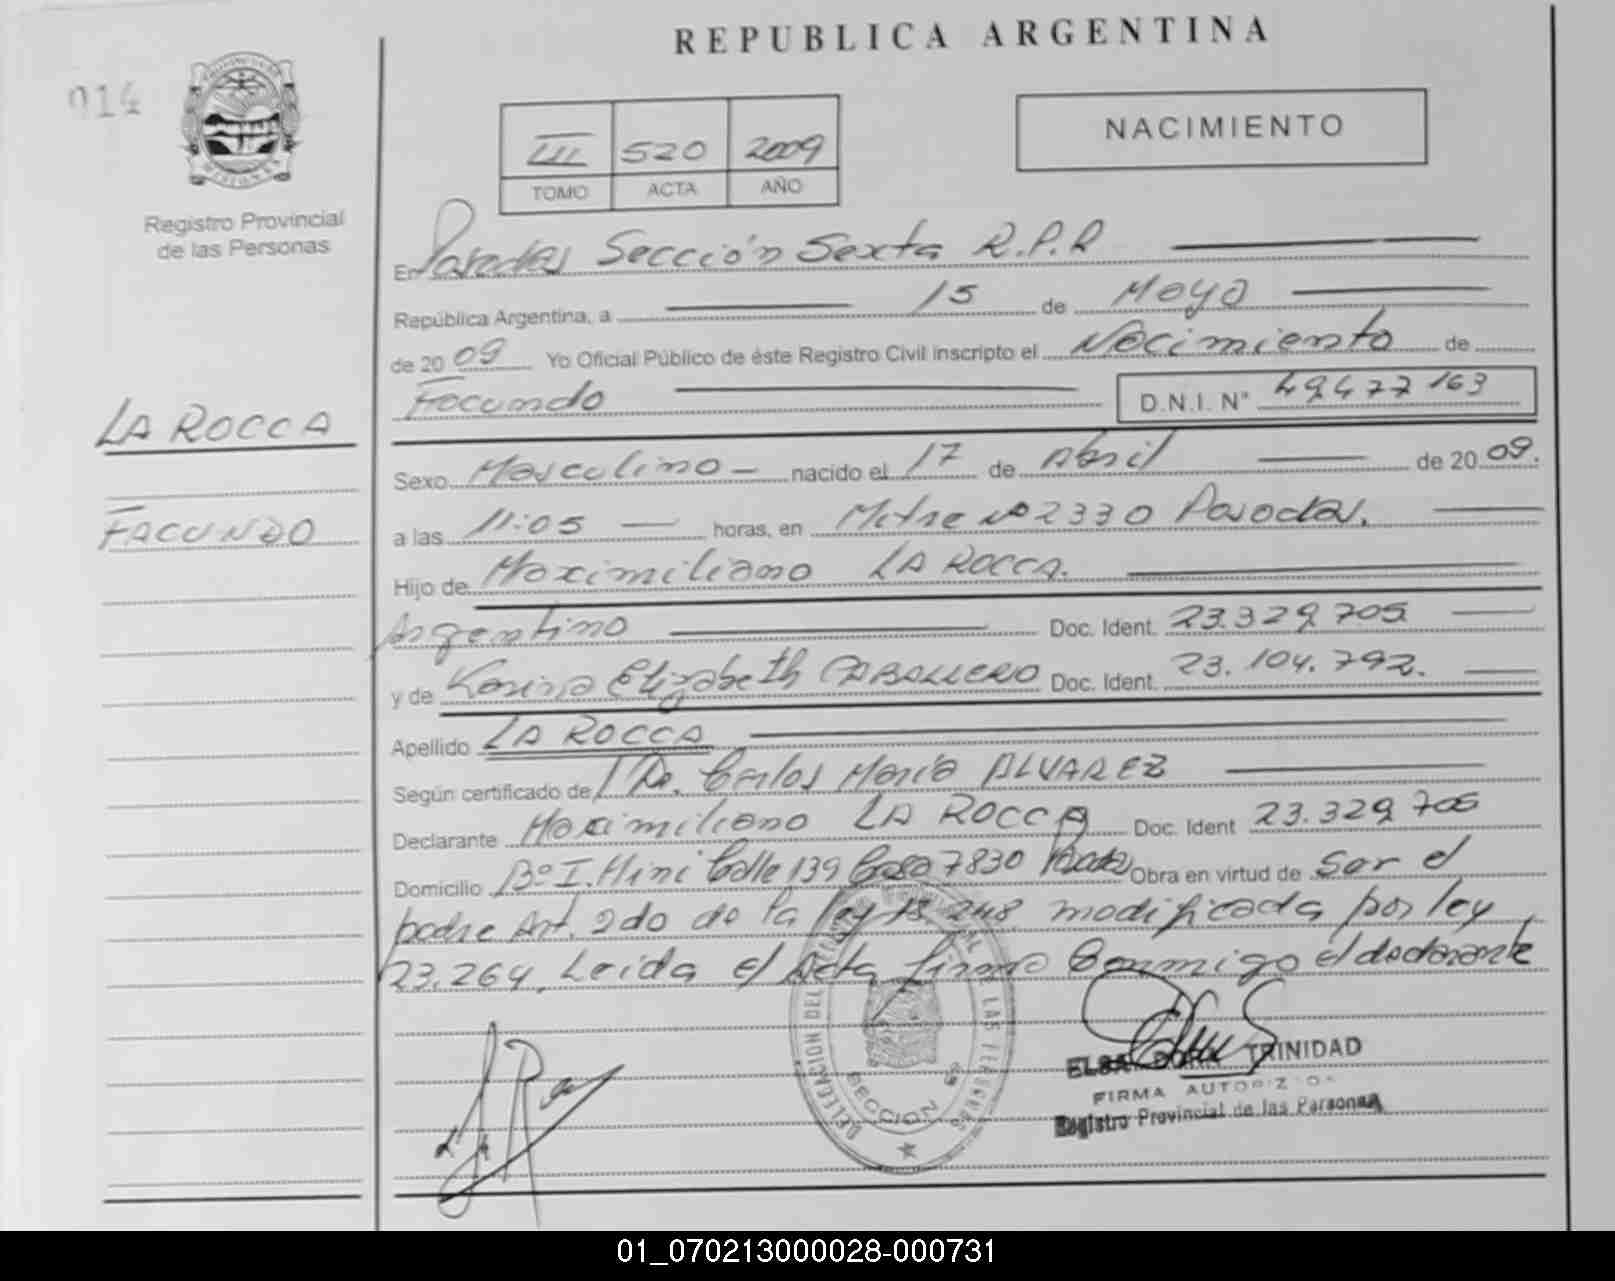 REPUBLICA ARGENTINA
014
PROVINCIA DE
MISIONES
Registro Provincial
de las Personas
III 520 2009
TOMO ACTA AÑO
NACIMIENTO
En Posadas Sección Sexta R.P.P
República Argentina, a 15 de Mayo
de 2009 Yo Oficial Público de éste Registro Civil inscripto el Nacimiento de
Facundo D.N.I. N° 49477163
LA ROCCA
FACUNDO
Sexo Masculino nacido el 17 de Abril de 2009.
a las 11:05 horas, en Mitre Nº 2330 Posadas.
Hijo de Maximiliano LA ROCCA.
Argentino Doc. Ident. 23.329.705
y de Karina Elizabeth CABALLERO Doc. Ident. 23.104.792.
Apellido LA ROCCA
Según certificado de Dr. Carlos María ALVAREZ
Declarante Maximiliano LA ROCCA Doc. Ident 23.329.705
Domicilio Bº I. Mini Calle 139 Casa 7830 Posadas Obra en virtud de Ser el
padre Art. 2do de la ley 18.248 modificada por ley
23.264, Leida el Acta firma Conmigo el declarante
DELEGACION DEL REGISTRO PROVINCIAL DE LAS PERSONAS
SECCION 6ª
ELSA DORA TRINIDAD
FIRMA AUTORIZADA
Registro Provincial de las Personas
01_070213000028-000731